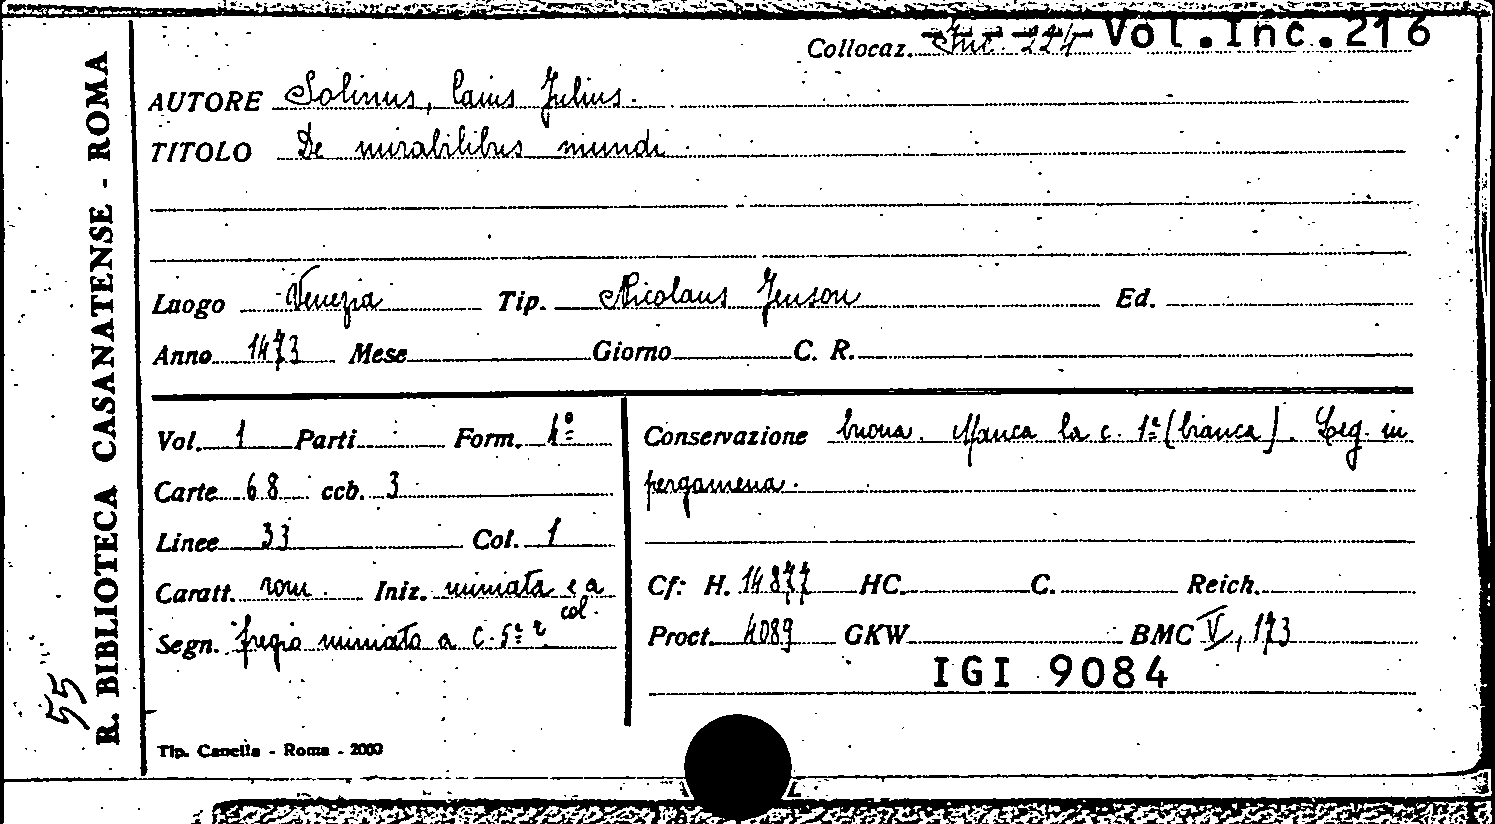 Collocaz. Inc. 224 Vol.Inc.216
AUTORE Solinus, Caius Julius.
TITOLO De mirabilibus mundi.
Luogo Venezia Tip. Nicolaus Jenson Ed.
Anno 1473 Mese Giorno C. R.
Vol. 1 Parti Form. 4º
Carte 68 ccb. 3
Linee 33 Col. 1
Caratt. rom. Iniz. miniata e a col.
Segn. fregio miniato a c. 5ª r
Conservazione buona. Manca la c. 1ª (bianca). Leg. in
pergamena.
Cf: H. 14877 HC. C. Reich.
Proct. 4089 GKW BMC V, 173
IGI 9084
Tip. Canella - Roma - 2000
R. BIBLIOTECA CASANATENSE - ROMA
55